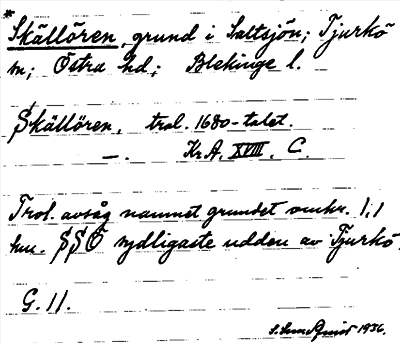 *
Skällören, grund i Saltsjön; Tjurkö
m; Östra hd; Blekinge l.
Skällören, trol. 1680-talet.
—. Kr.A. XVIII. C.
Trol. avsåg namnet grundet omkr. 1,1
km. SSÖ sydligaste udden av Tjurkö.
G. 11.
1936.